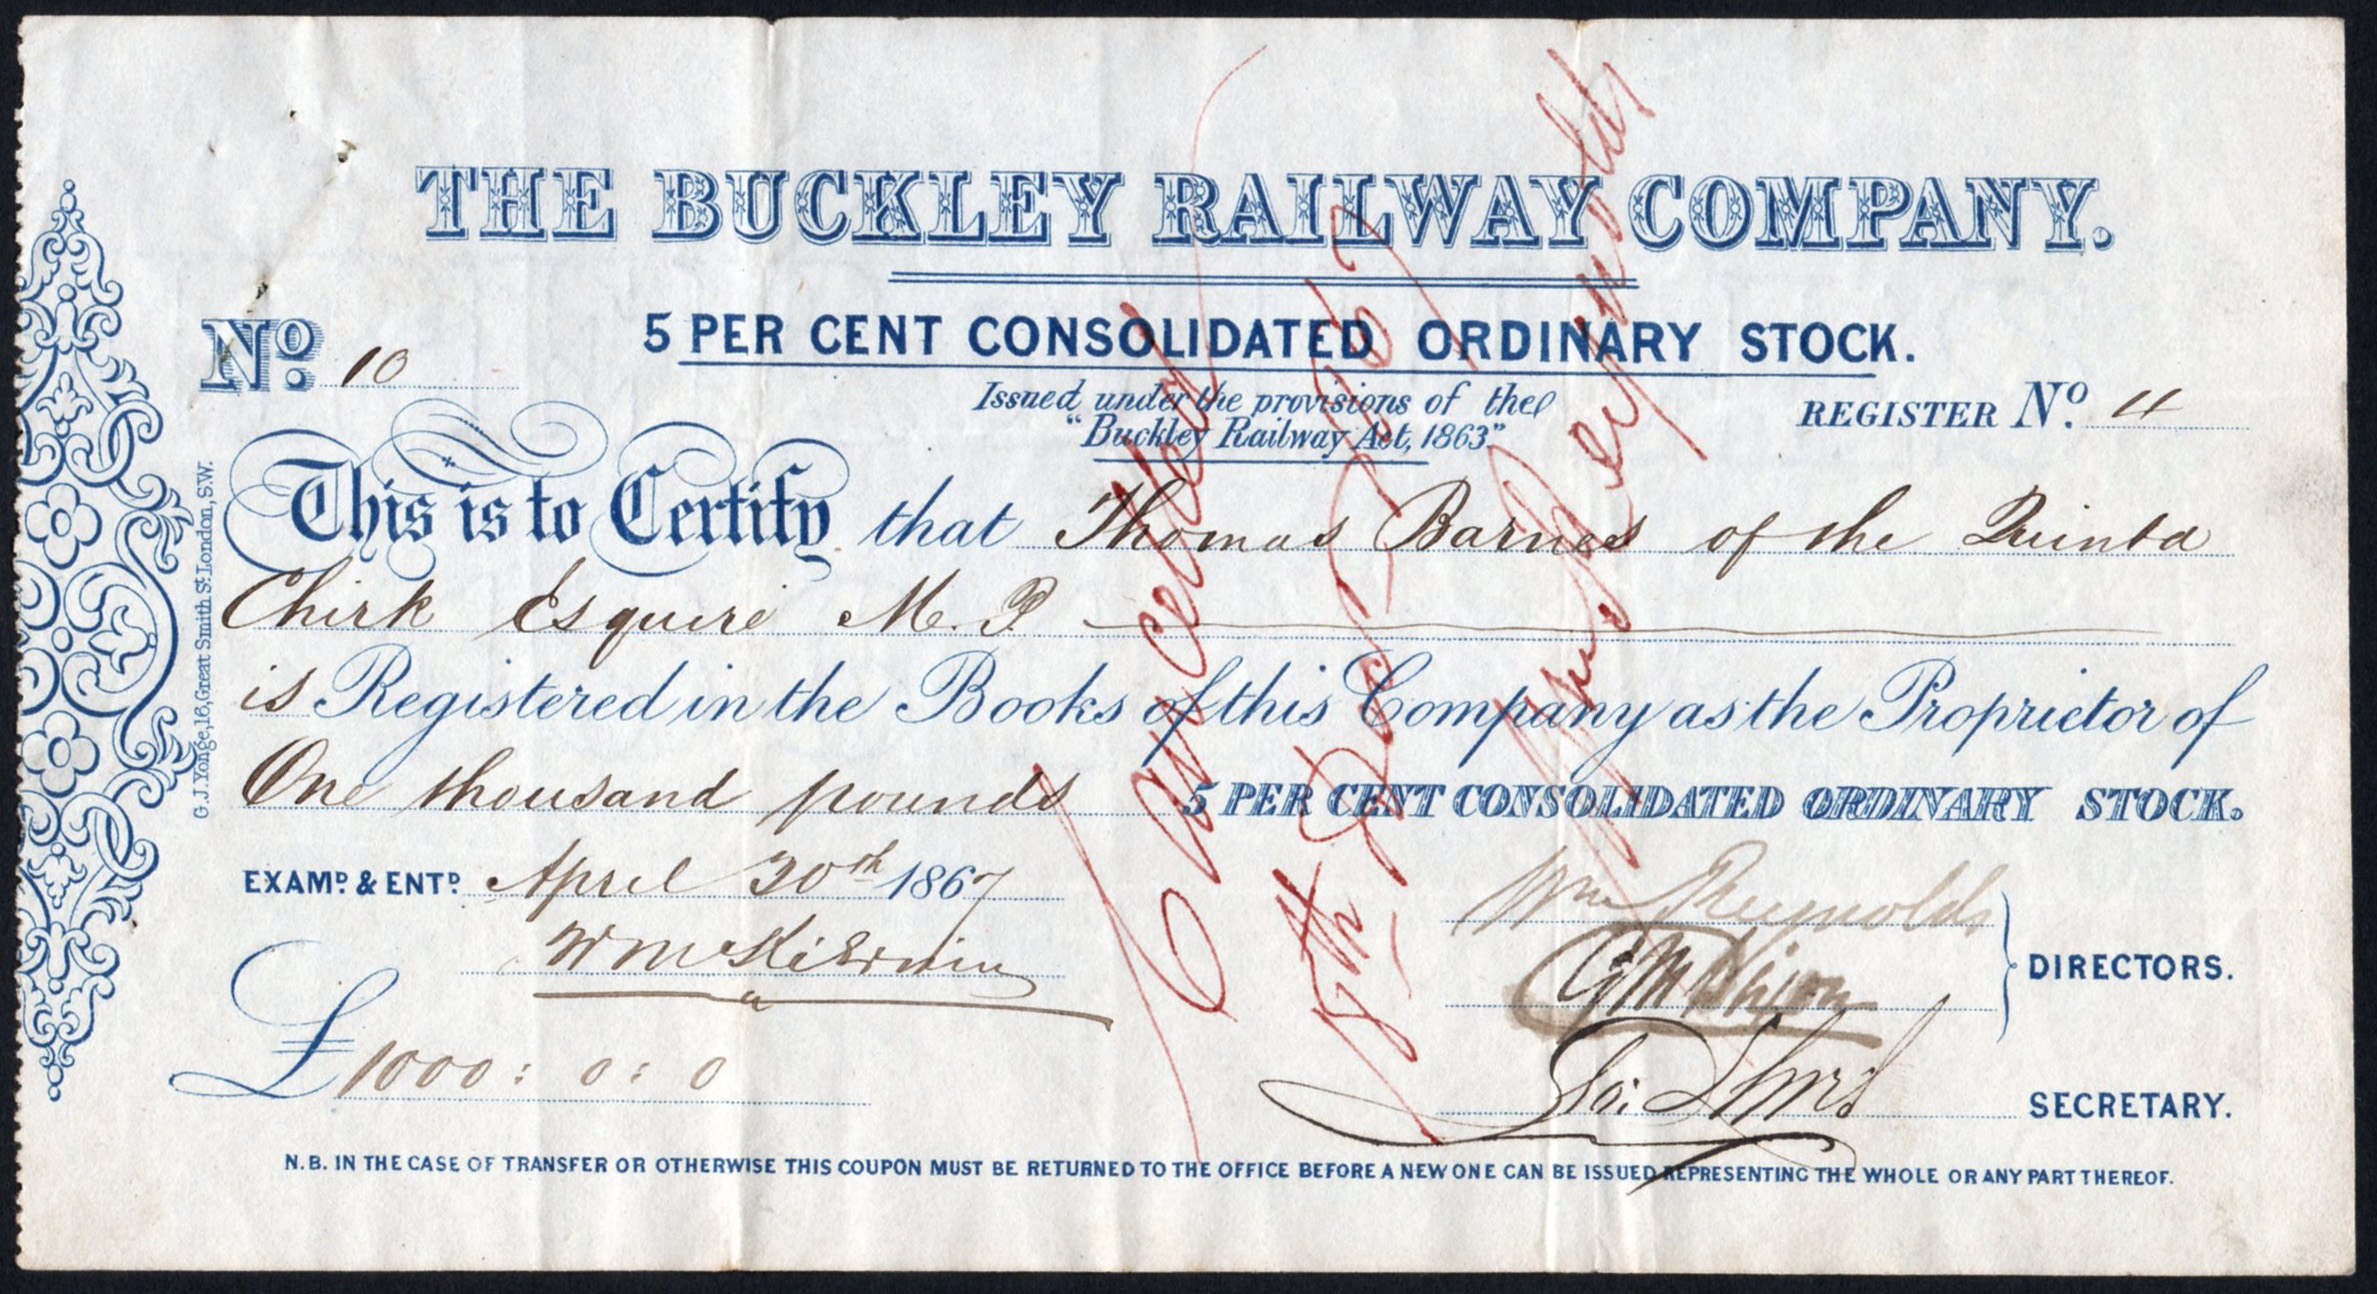 THE BUCKLEY RAILWAY COMPANY.
5 PER CENT CONSOLIDATED ORDINARY STOCK.
No. 10
Issued under the provisions of the
"Buckley Railway Act, 1863"
REGISTER No. 4
This is to Certify that Thomas Barnes of the Quinta
Chirk Esquire M. P.
is Registered in the Books of this Company as the Proprietor of
One thousand pounds 5 PER CENT CONSOLIDATED ORDINARY STOCK.
EXAMD. & ENTD. April 30th 1867
Wm Reynolds
DIRECTORS.
£1000 : 0 : 0
SECRETARY.
N.B. IN THE CASE OF TRANSFER OR OTHERWISE THIS COUPON MUST BE RETURNED TO THE OFFICE BEFORE A NEW ONE CAN BE ISSUED REPRESENTING THE WHOLE OR ANY PART THEREOF.
G. J. Yonge, 16, Great Smith St. London, S.W.
Cancelled
18th Dec
Wm Reynolds